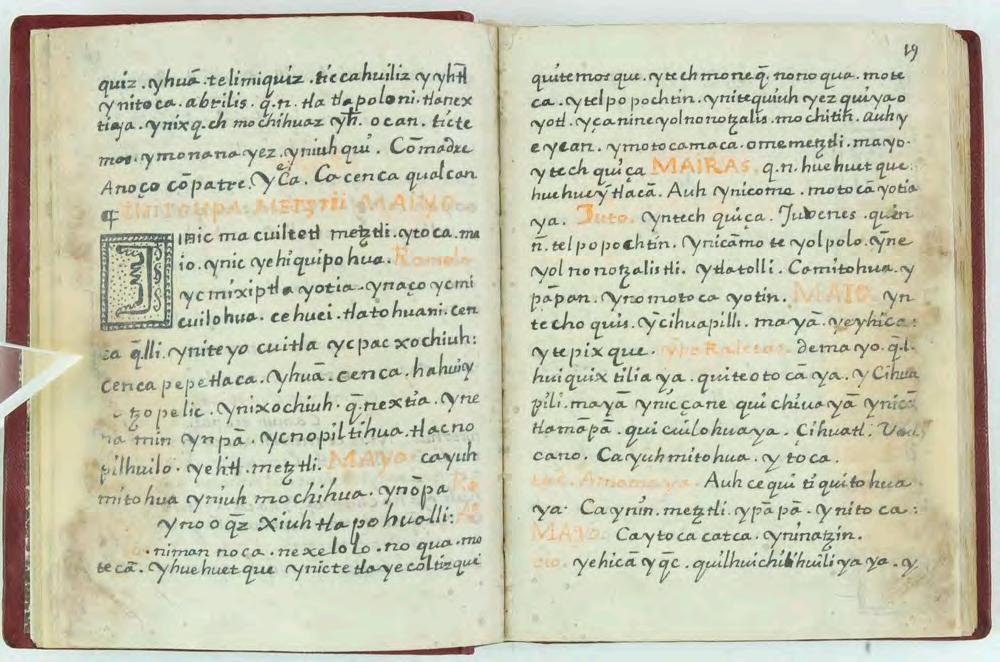 quiz. yhuā. telimiquiz. ticcahuiliz y yhtl
ynitoca. abrilis. q̄.n. tla tlapoloni. tlanex
tiaja. ynixq.ch mochihuaz yh̄. ocan. ticte
mos. ymonana yez. yniuh qui. Cōmadre
Anoço cōpatre. Yēca. Ca cenca qualcan
¶ INITOUPA. METZTII MAIYO
Inic macuiltetl metztli. ytoca. ma
io. ynic yehiquipohua. Romolo
ycmixiptla yotia. ynaço ycmi
cuilohua. ce huei. tlatohuani. cen
ca q̄.lli. yniteyo cuitla ycpac xochiuh:
cenca pepetlaca. yhuā. cenca. hahuiy
tzopelic. ynixochiuh. q̄.nextia. yne
min ynpā. ycnopiltihua. tlacno
pilhuilo. yehtl. metztli. MAYO. cayuh
mitohua yniuh mochihua. ynōpa Ro
ynooq̄z xiuh tlapohualli:
niman noca. nexelolo. no qua. mo
tecā. yhuehuetque ynictetlayecoltizqui
19
quitemosque. ytechmoneq̄. nonoqua. mote
ca. ytelpopochtin. ynitequiuh yez quiyao
yotl. yçanineyolnonotzalis. mochitin. auh y
eyean. ymotocamaca. omemetztli. mayo.
ytech quiça MAIRAS. q.n. huehuetque:
huehueȳtlacā. Auh ynicome. motocāyotia
ya. Juto. yntech quiça. Jubenes. quin
n̄. telpopochtin. ynicāmo te yolpolo. ȳne
yolnonotzalistli. ytlatolli. Camitohua. y
pāpan. ynomotoca yotin. MAIO yn
techo quis. ȳcihuapilli. mayā. yeyhica:
ytepixque. ypo Raletas. demayo. q̄.l.
huiquixtiliaya. quiteotocāya. y Cihua
pili. mayā yniccane quichiuayā ynica
tlamapā. quicuilohuaya. Cihuatl. Vou
cano. Cayuhmitohua. ytoca.
Amamaya. Auh cequi tiquitohua
ya. Caynin. metztli. ypāpā. ynitoca:
MAYO. Caytoca catca. yninatzin.
yehicā yq̄c. quilhuichihuiliyaya. y